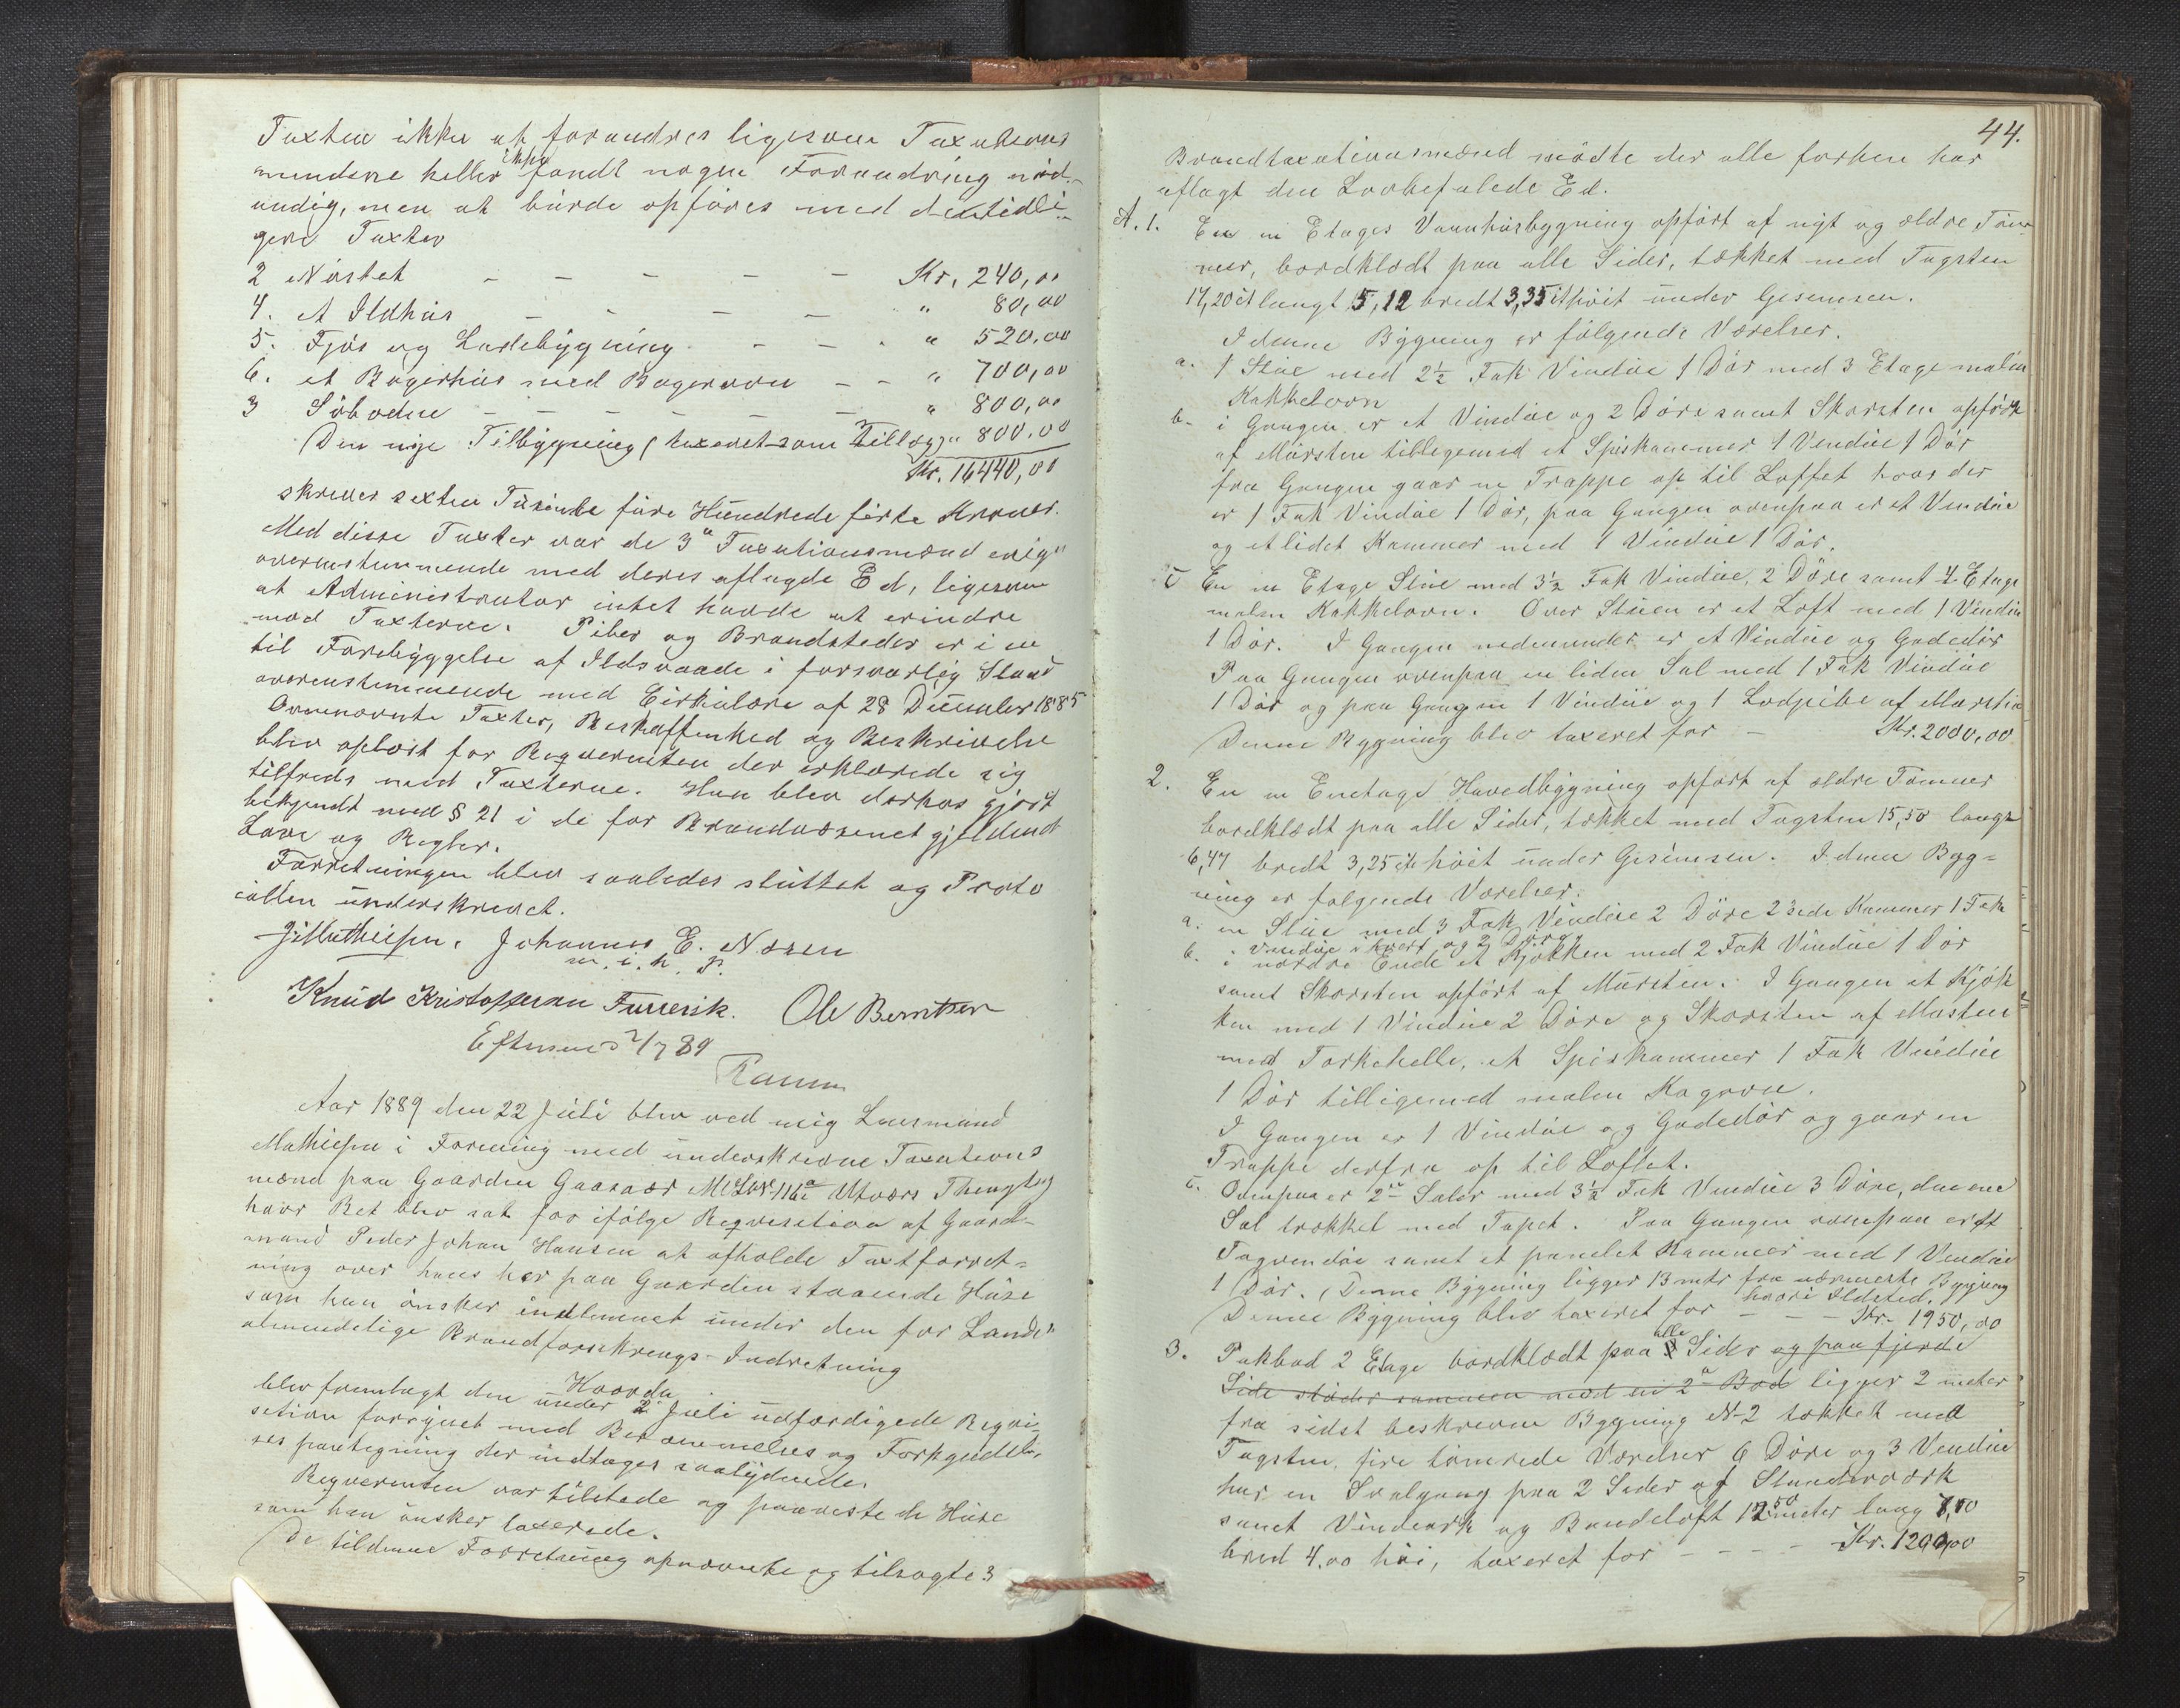 Taxten ikke at forandres ligesom Taxations
mændene heller ikke fandt nogen Forandring nöd-
vendig, men at burde opföres med de tidli-
gere Taxter
2 Nöstet - - - - - Kr. 240,00
4. et Ildhus - - - - " 80,00
5. Fjös og Ladebygning - - - " 520,00
6. et Bagerhus med Bagerovn - - " 700,00
3 Söboden - - - - - " 800,00
Den nye Tilbygning (taxeret som Tillæg) " 800,00
Kr. 16440,00
skriver sexten Tusinde fire Hundrede förti Kroner.
Med disse Taxter var de 3de Taxationsmænd enige
overenstemmende med deres aflagde Ed, ligesom
at Administrator intet havde at erindre
mod Taxterne. Piber og Brandsteder er i en
til Forebyggelse af Ildsvaade i forsvarlig Stand
overenstemmende med Cirkulære af 28 December 1885
Ovennævnte Taxter, Beskaffenhed og Beskrivelse
blev oplæst for Reqverenten der erklærede sig
tilfreds med Taxterne. Han blev derhos gjort
bekjendt med § 21 i de for Brandvæsenet gjeldende
Love og Regler.
Forretningen blev saaledes sluttet og Proto
collen underskrevet.
JMathiesen. Johannes E. Nosen
m. i. h. P.
Knud Kristoffersen Furresik. Ole Berntsen
Eftersees 2/7 89
Aar 1889 den 22 Juli blev ved mig Lensmand
Mathiesen i Forening med underskrevne Taxations
mænd paa Gaarden Gaasvær Ml LNr. 116a Utvær Thinglag
hvor Ret blev sat for ifölge Reqvisition af Gaard-
mand Peder Johan Hansen at afholde Taxtforret-
ning over hans her paa Gaarden staaende Huse
som han önsker indlemmet under den for Landet
almindelige Brandforsikrings-Indretning
Hvorda
blev fremlagt den under 2 Juli udfærdigede Reqvi-
sition forsynet med Berammelses og Forkyndel-
ses paategning der indtages saalydende.
Reqverenten var tilstede og paaviste de Huse
som han önsker taxerede.
De til denne Forretning opnævnte og tilsagte 3
44.
Brandtaxationsmænd mödte der alle forhen har
aflagt den Lovbefalede Ed.
A. 1. En en Etages Vaanhusbygning opfört af nyt og ældre Töm-
mer, bordklædt paa alle Sider, tækket med Tagsten
17,20 ct langt 5,12 bredt 3,35 ct höit under Gesimsen.
I denne Bygning er fölgende Værelser.
a. 1 Stue med 2½ Fak Vindue 1 Dör med 3 Etage malm
Kakkelovn
b. i Gangen er et Vindue og 2 Döre samt Skorsten opfört
af Mursten tilligemed et Spiskammer 1 Vindue 1 Dör
fra Gangen gaar en Trappe op til Loftet hvor der
er 1 Fak Vindue 1 Dör, paa Gangen ovenpaa er et Vindue
og et lidet Kammer med 1 Vindue 1 Dör.
c En en Etage Stue med 3½ Fak Vindue, 2 Döre samt 4 Etage
malm Kakkelovn. Over Stuen er et Loft med 1 Vindue
1 Dör. I Gangen nedenunder er et Vindue og Gadedör
Paa Gangen ovenpaa en liden Sal med 1 Fak Vindue
1 Dör og paa Gangen 1 Vindue og 1 Lodpibe af Mursten
Denne Bygning blev taxeret for - Kr. 2000,00
2. En en Enetage Hovedbygning opfört af ældre Tömmer
bordklædt paa alle Sider, tækket med Tagsten 15,50 langt
6,47 bredt 3,25 ct höit under Gesimsen. I denne Byg-
ning er fölgende Værelser.
a. en Stue med 3 Fak Vindue 2 Döre 2 Side Kammer 1 Fak
Vindue i hvert og 2 Döre
b. i nordre Ende et Kjökken med 2 Fak Vindue 1 Dör
samt Skorsten opfört af Mursten. I Gangen et Kjök
ken med 1 Vindue 2 Döre og Skorsten af Mursten
med Torkehelle, et Spiskammer 1 Fak Vindue
1 Dör tilligemed malm Kogovn.
I Gangen er 1 Vindue og Gadedör og gaar en
Trappe derfra op til Loftet.
c. Ovenpaa er 2de Saler med 3½ Fak Vindue 3 Döre, den ene
Sal trækket med Tapet. Paa Gangen ovenpaa er et
Tagvindue samt et panelet Kammer med 1 Vindue
1 Dör. (Denne Bygning ligger 13 mtr fra nærmeste Bygning
hvori Ildsted.
Denne Bygning blev taxeret for - - - Kr. 1950,00
3. Pakbod 2 Etage bordklædt paa alle Sider og paa fjerde
Side stöder sammen med en 2de Bod ligger 2 meter
fra sidst beskrevne Bygning N-2 tækket med
Tagsten, fire tömrede Værelser 6 Döre og 3 Vindue
har en Svalgang paa 2 Sider af Stenderværk
samt Vindeark og Bandeloft 12,50 meter lang 7,10
bred 4,00 höi, taxeret for - - - - Kr. 1200,00